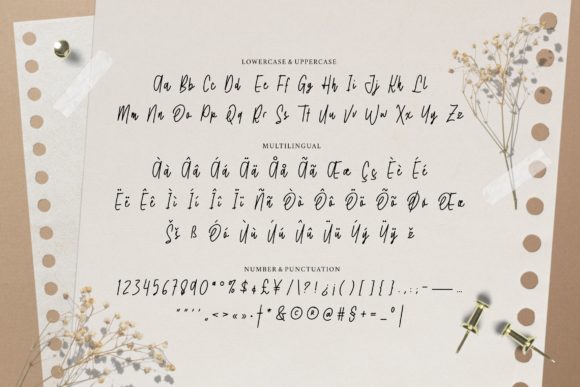 LOWERCASE & UPPERCASE
Aa Bb Cc Dd Ee Ff Gg Hh Ii Jj Kk Ll
Mm Nn Oo Pp Qq Rr Ss Tt Uu Vv Ww Xx Yy Zz
MULTILINGUAL
Àà Ââ Áá Ää Åå Ãã Œœ Çç Èè Éé
Ëë Êê Ìì Íí Îî Ïï Ññ Òò Ôô Öö Õõ Øø Œœ
Šš ß Óó Ùù Úú Ûû Üü Ýý Ÿÿ ž
NUMBER & PUNCTUATION
1234567890 °% $ ¢ £ ¥ / | \ ? ! ¿ ¡ ( ) [ ] { } . , : ; - — ...
" " ' ' „ < > « » · † * & © ® @ # § + = _ ° |